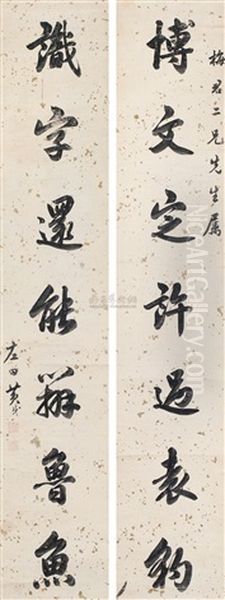 梅君二兄先生属
博文定許過袁豹
識字還能辨魯魚
左田黄鉞